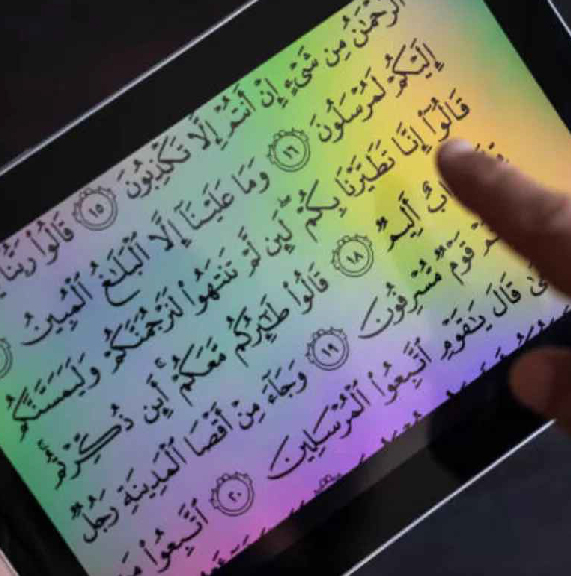 ٱلرَّحْمَٰنُ مِن شَىْءٍ إِنْ أَنتُمْ إِلَّا تَكْذِبُونَ ١٥ قَالُوا۟ رَبُّنَا
إِلَيْكُمْ لَمُرْسَلُونَ ١٦ وَمَا عَلَيْنَآ إِلَّا ٱلْبَلَٰغُ ٱلْمُبِينُ
قَالُوٓا۟ إِنَّا تَطَيَّرْنَا بِكُمْ ۖ لَئِن لَّمْ تَنتَهُوا۟ لَنَرْجُمَنَّكُمْ وَلَيَمَسَّنَّكُم
أَلِيمٌ ١٨ قَالُوا۟ طَٰٓئِرُكُم مَّعَكُمْ ۚ أَئِن ذُكِّرْتُم
قَوْمٌ مُّسْرِفُونَ ١٩ وَجَآءَ مِنْ أَقْصَا ٱلْمَدِينَةِ رَجُلٌ
قَالَ يَٰقَوْمِ ٱتَّبِعُوا۟ ٱلْمُرْسَلِينَ ٢٠ ٱتَّبِعُوا۟